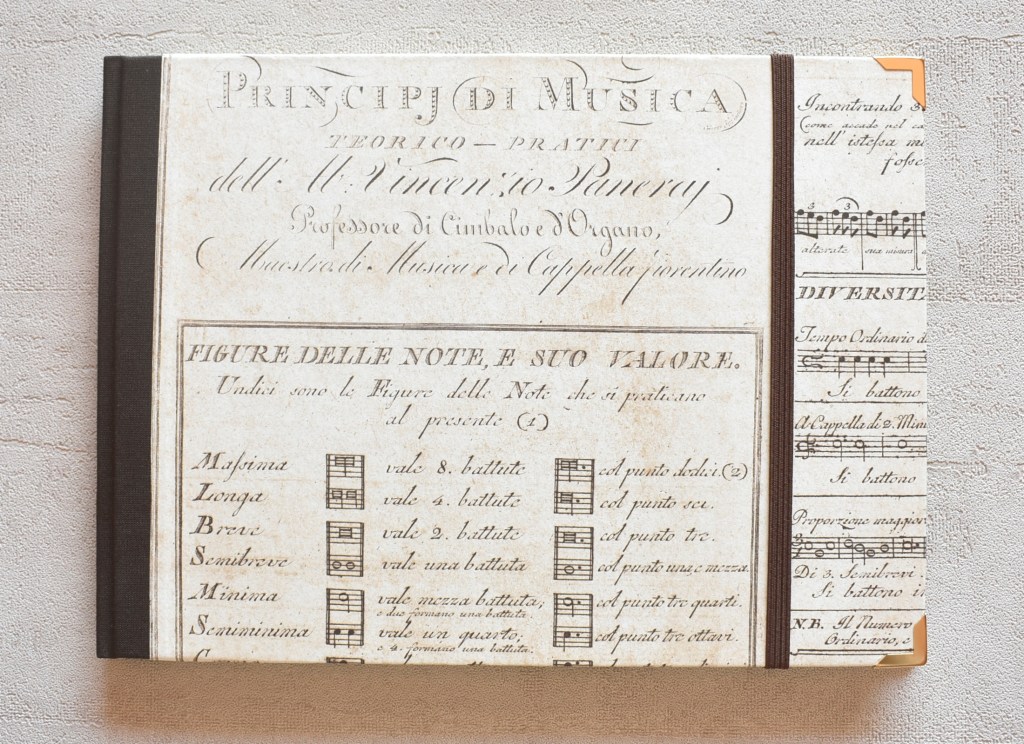 PRINCIPJ DI MUSICA
TEORICO — PRATICI
dell' Ab. Vincenzio Paneraj
Professore di Cimbalo e d'Organo,
Maestro di Musica e di Cappella fiorentino
FIGURE DELLE NOTE, E SUO VALORE.
Undici sono le Figure delle Note che si praticano
al presente (1)
Massima vale 8. battute col punto dodici.(2)
Longa vale 4. battute col punto sei.
Breve vale 2. battute col punto tre.
Semibreve vale una battuta col punto una, e mezza.
Minima vale mezza battuta; col punto tre quarti.
e due formano una battuta.
Semiminima vale un quarto; col punto tre ottavi.
e 4. formano una battuta.
Incontrando
(come accade nel
nell' istessa
fosse
3 3
alterate sua
DIVERSIT
Tempo Ordinario
Si battono
A Cappella di 2.
Si battono
Proporzione maggior
Di 3. Semibrevi
Si battono
N.B. Il Numero
Ordinario, e